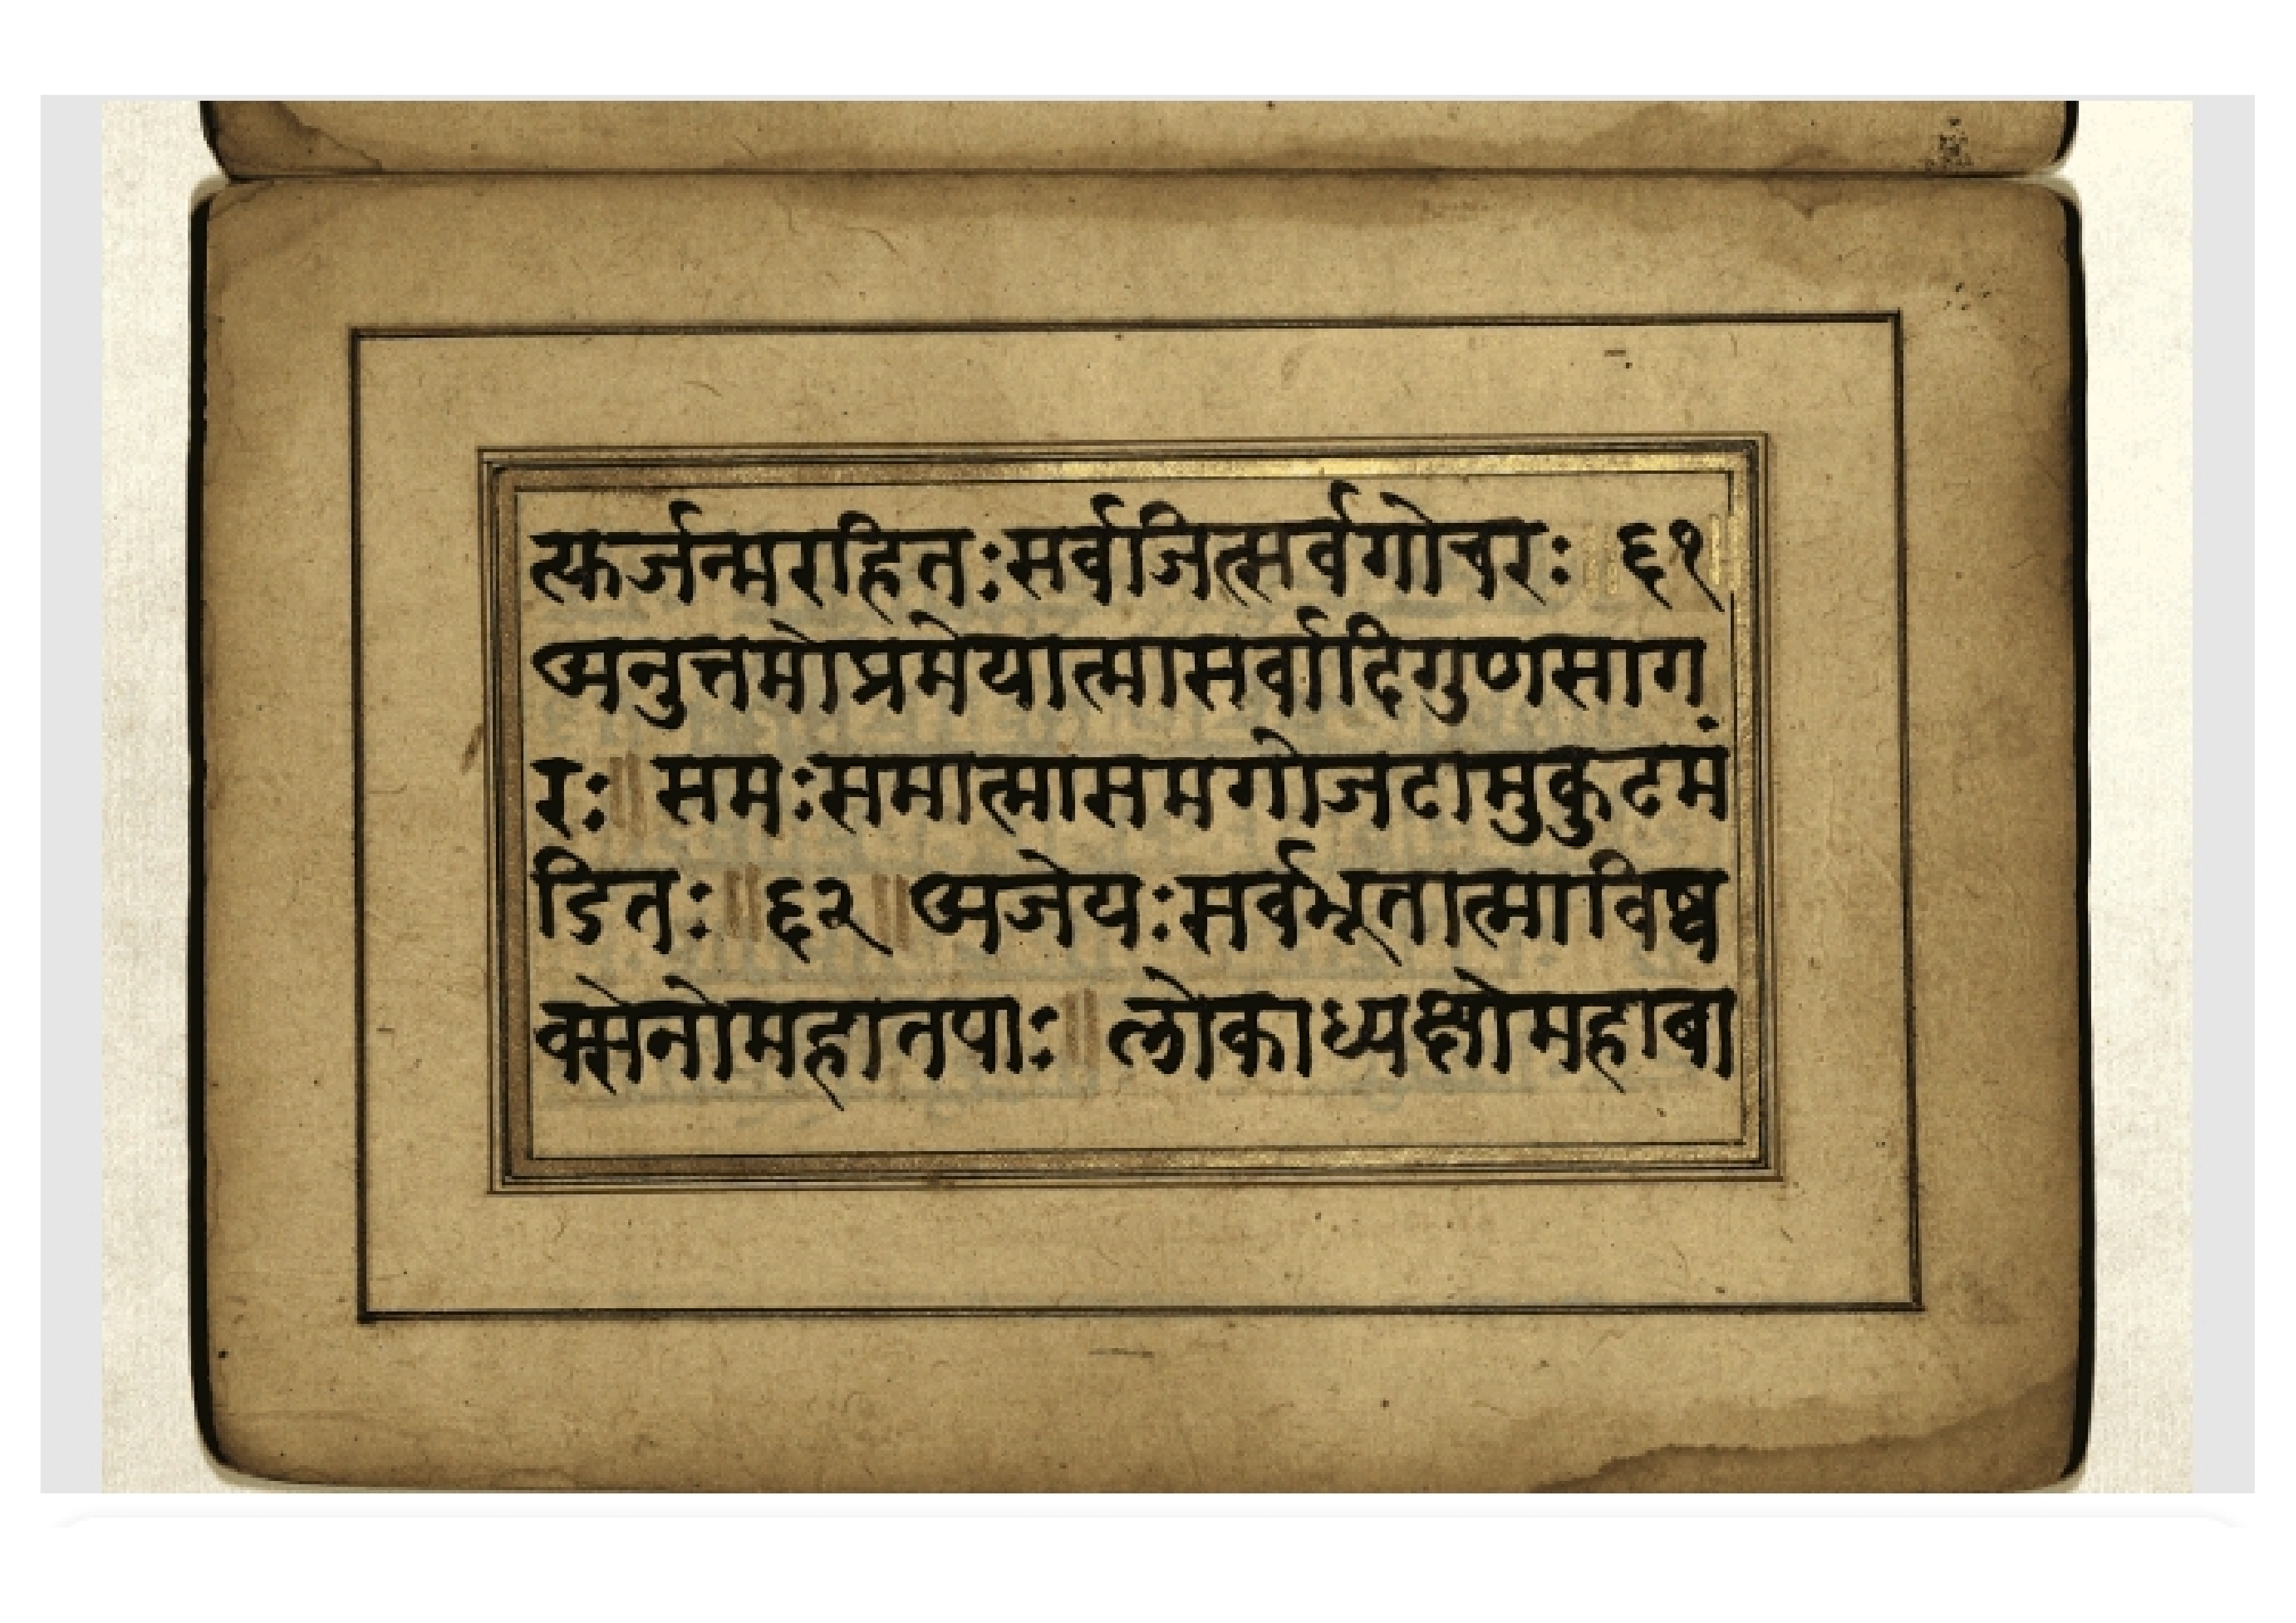 त्फर्जन्मरहितःसर्वजित्सर्वगोचरः ॥ ६१ ॥
अनुत्तमोप्रमेयात्मासर्वादिगुणसाग
रः ॥ समःसमात्मासमगोजटामुकुटमं
डितः ॥ ६२ ॥ अजेयःसर्वभूतात्माविष्व
क्सेनोमहातपाः ॥ लोकाध्यक्षोमहाबा